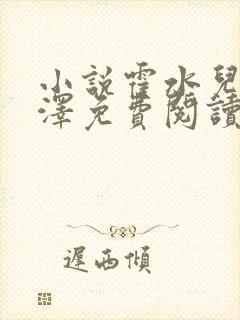 小說霍水兒
澤免費閱讀
遲西傾